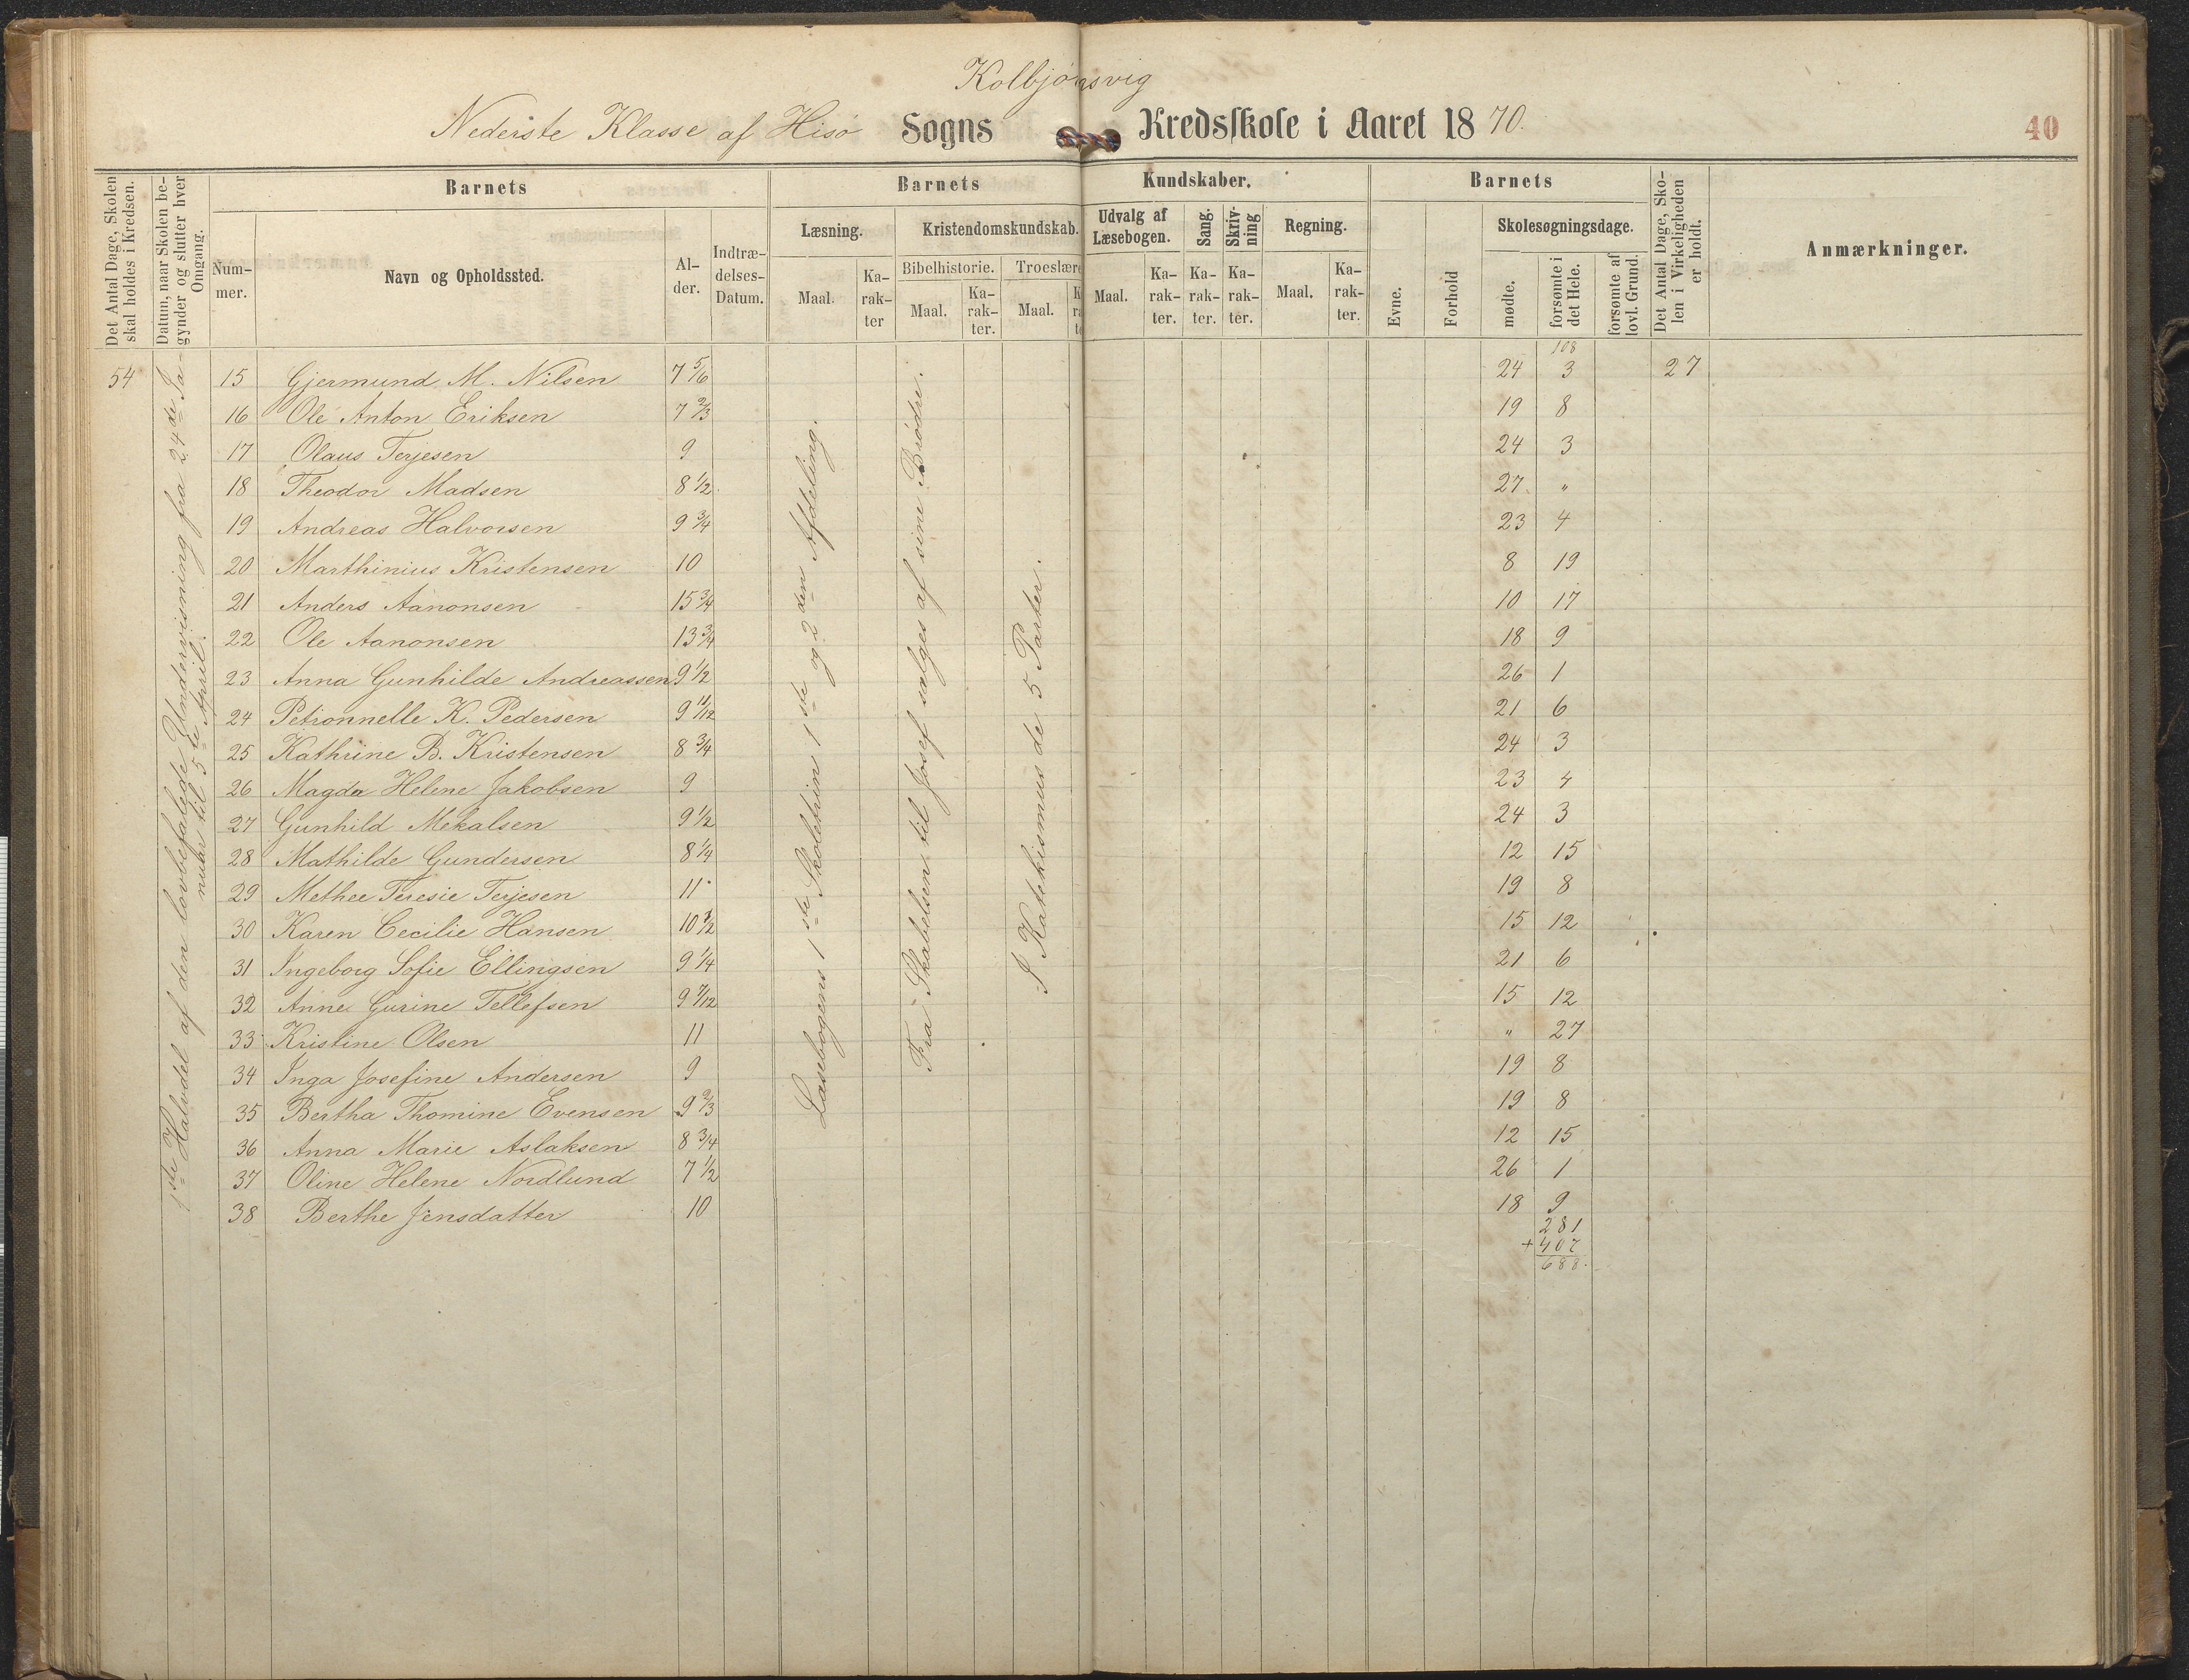 Kolbjønsvig
Nederste Klasse af Hisø Sogns Kredsskole i Aaret 1870.
40
Det Antal Dage, Skolen skal holdes i Kredsen.
Datum, naar Skolen begynder og slutter hver Omgang.
Barnets
Nummer.
Navn og Opholdssted.
Alder.
Indtrædelses-Datum.
Barnets Kundskaber.
Læsning.
Maal.
Karakter
Kristendomskundskab.
Bibelhistorie.
Maal.
Karakter.
Troeslære
Maal.
Udvalg af Læsebogen.
Maal.
Karakter.
Sang.
Karakter.
Skrivning
Karakter.
Regning.
Maal.
Karakter.
Barnets
Evne.
Forhold
Skolesøgningsdage.
mødte.
forsømte i det Hele.
forsømte af lovl. Grund.
Det Antal Dage, Skolen i Virkeligheden er holdt.
Anmærkninger.
54
1ste Halvdel af den lovbefalede Undervisning fra 24de Januar til 5te April.
Læsebogens 1ste Skoletrin 1ste og 2den Afdeling.
Fra Skabelsen til Josef sælges af sine Brødre.
I Katekismus de 5 Parter.
108
15 Gjermund M. Nilsen 7 5/6 24 3 27
16 Ole Anton Eriksen 7 2/3 19 8
17 Olaus Terjesen 9 24 3
18 Theodor Madsen 8 1/2 27 "
19 Andreas Halvorsen 9 3/4 23 4
20 Marthinius Kristensen 10 8 19
21 Anders Aanonsen 15 3/4 10 17
22 Ole Aanonsen 13 3/4 18 9
23 Anna Gunhilde Andreassen 9 1/2 26 1
24 Petronnelle K. Pedersen 9 11/12 21 6
25 Kathrine B. Kristensen 8 3/4 24 3
26 Magda Helene Jakobsen 9 23 4
27 Gunhild Mekalsen 9 1/2 24 3
28 Mathilde Gundersen 8 1/4 12 15
29 Methee Teresie Terjesen 11 19 8
30 Karen Cecilie Hansen 10 1/2 15 12
31 Ingeborg Sofie Ellingsen 9 1/4 21 6
32 Anne Gurine Tellefsen 9 7/12 15 12
33 Kristine Olsen 11 " 27
34 Inga Josefine Andersen 9 19 8
35 Bertha Thomine Evensen 9 2/3 19 8
36 Anna Marie Aslaksen 8 3/4 12 15
37 Oline Helene Nordlund 7 1/2 26 1
38 Berthe Jensdatter 10 18 9
281
+407
688.